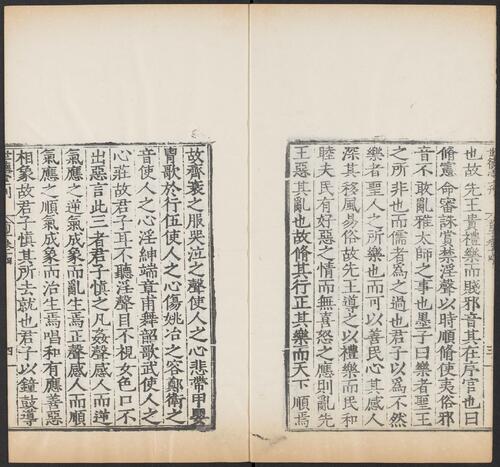 也故 先王貴禮樂而賤邪音其在序官也曰
脩憲命審誅賞禁淫聲以時順脩使夷俗邪
音不敢亂雅太師之事也墨子曰樂者聖王
之所非也而儒者為之過也君子以為不然
樂者聖人之所樂也而可以善民心其感人
深其移風易俗故先王導之以禮樂而民和
睦夫民有好惡之情而無喜怒之應則亂先
王惡其亂也故脩其行正其樂而天下順焉
故齊衰之服哭泣之聲使人之心悲帶甲嬰
冑歌於行伍使人之心傷姚冶之容鄭衛之
音使人之心淫紳端章甫舞韶歌武使人之
心莊故君子耳不聽淫聲目不視女色口不
出惡言此三者君子慎之凡姦聲感人而逆
氣應之逆氣成象而亂生焉正聲感人而順
氣應之順氣成象而治生焉唱和有應善惡
相象故君子慎其所去就也君子以鐘鼓導
四